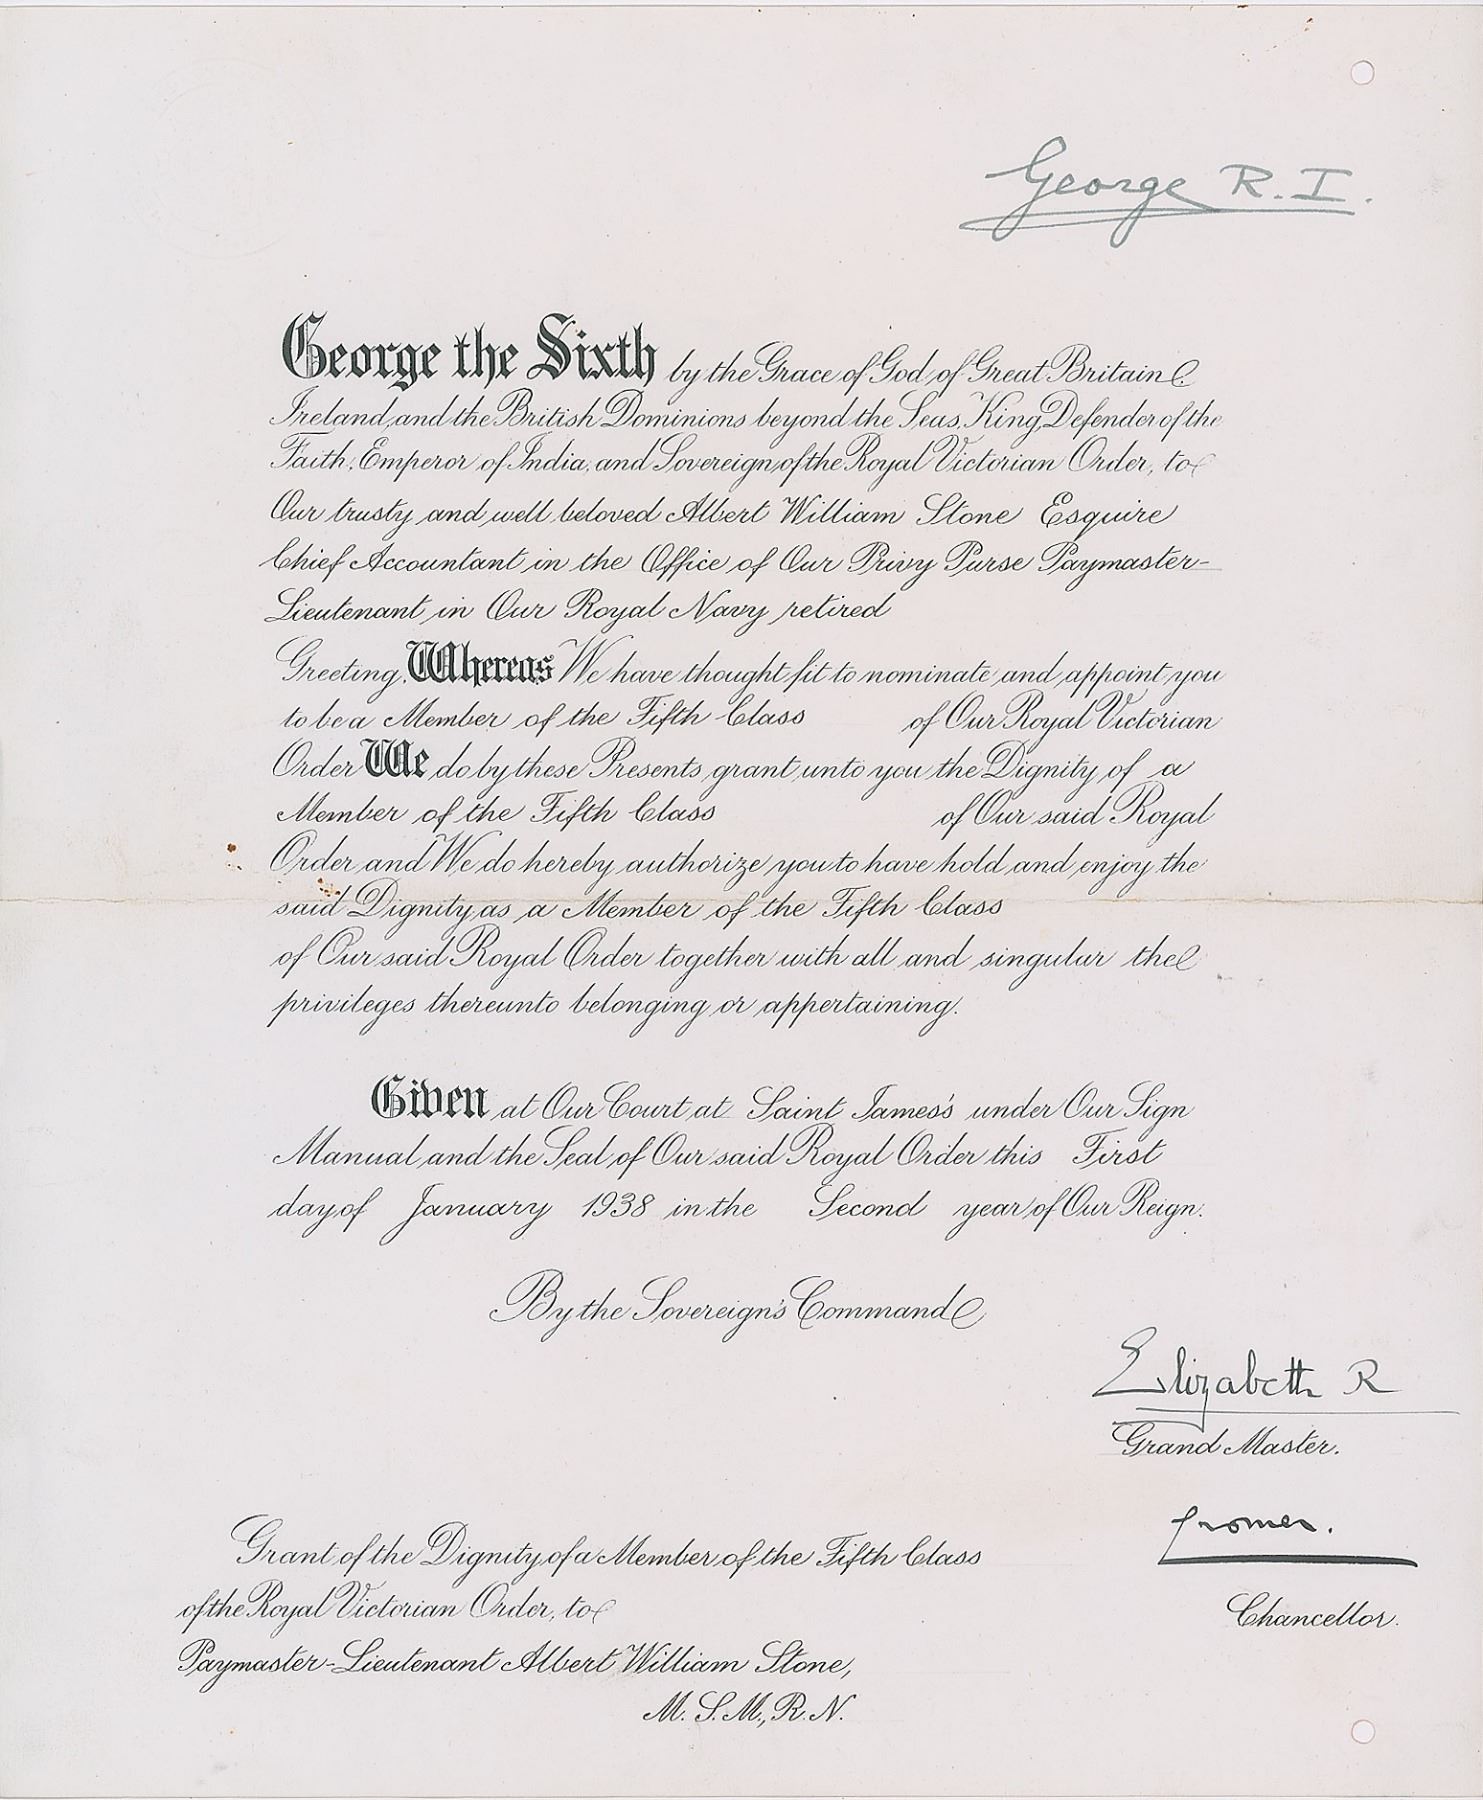 George R. I.
George the Sixth by the Grace of God, of Great Britain
Ireland, and the British Dominions beyond the Seas, King, Defender of the
Faith, Emperor of India, and Sovereign of the Royal Victorian Order, to
Our trusty and well beloved Albert William Stone Esquire
Chief Accountant in the Office of Our Privy Purse Paymaster-
Lieutenant in Our Royal Navy retired
Greeting, Whereas We have thought fit to nominate and appoint you
to be a Member of the Fifth Class of Our Royal Victorian
Order We do by these Presents grant unto you the Dignity of a
Member of the Fifth Class of Our said Royal
Order and We do hereby authorize you to have hold and enjoy the
said Dignity as a Member of the Fifth Class
of Our said Royal Order together with all and singular the
privileges thereunto belonging or appertaining.
Given at Our Court at Saint James's under Our Sign
Manual and the Seal of Our said Royal Order this First
day of January 1938 in the Second year of Our Reign.
By the Sovereign's Command
Elizabeth R
Grand Master.
Cromer.
Chancellor.
Grant of the Dignity of a Member of the Fifth Class
of the Royal Victorian Order, to
Paymaster-Lieutenant Albert William Stone,
M. S. M., R. N.